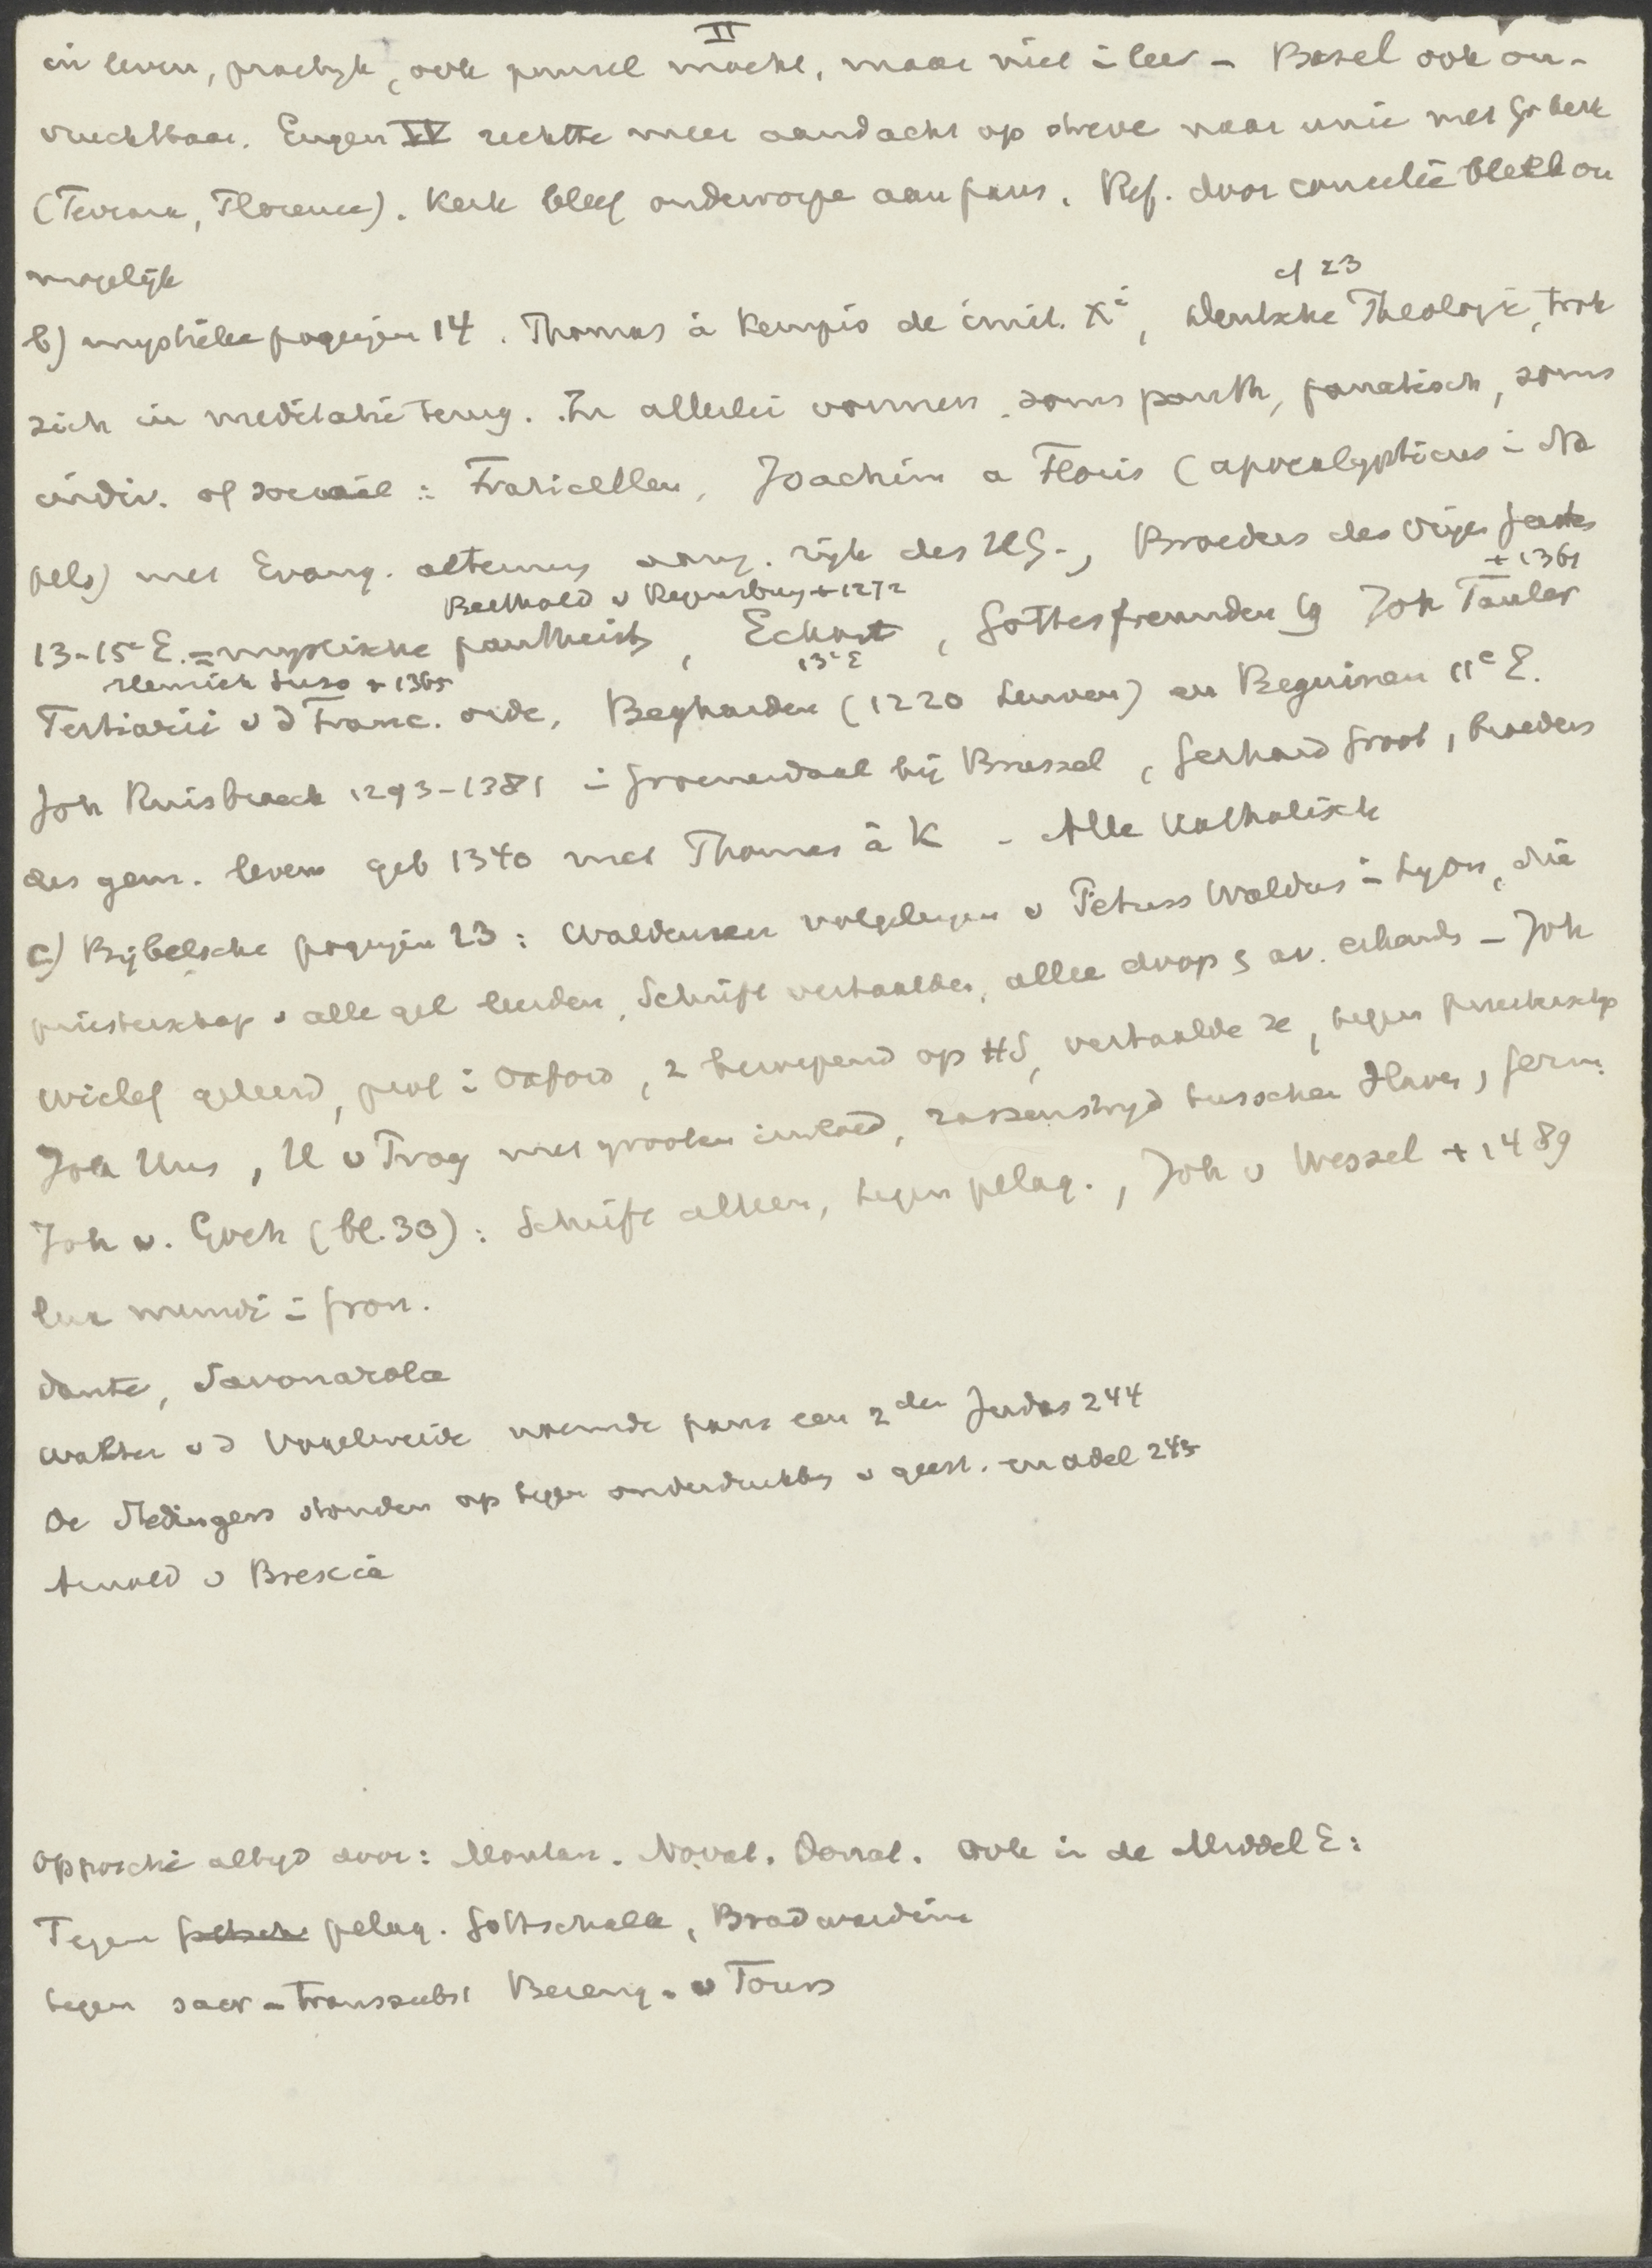 II
in leven, practijk, ook pausel macht, maar niet i leer - Basel ook on-
vruchtbaar. Eugen IV rechtte meer aandacht op streve naar unie met Gr kerk
(Ferrara, Florence). Kerk bleef onderworpe aan paus. Ref. door concilie bleek on
mogelijk
cf 23
b) mystieke pogingen 14. Thomas à Kempis de imit. Xi, Deutsche Theologie, trok
zich in meditatie terug. In allerlei vormen soms panth, fanatisch, soms
indiv. of sociaal: Fraticellen, Joachim a Floris (apocalypticus i Na
pels) met Evang. aeternus rijk des HG., Broeders des vrijen geestes
Berthold v Regensburg + 1272
+ 1361
13-15e E. = mystische pantheists, Eckart, Gottesfreunden Joh Tauler
13e E
Heinrich Suso + 1365
Tertiarii v d Franc. orde, Begharden (1220 Leuven) en Beguinen 11e E.
Joh Ruisbroeck 1293-1381 i Groenendaal bij Brussel, Gerhard Groot, broeders
des gem. levens geb 1340 met Thomas à K - Alle Katholisch
c) Bijbelsche pogingen 23: Waldensen volgelingen v Petrus Waldus i Lyon, die
priesterschap v alle gel leerden, Schrift vertaalden, allee doop & av. erkends - Joh
Wiclef geleerd, prof i Oxford, z beroepend op HS, vertaalde ze, tegen priestersch
Joh Hus, H v Praag met grooten invloed, rassenstrijd tusschen Slaven, Germ.
Joh v. Goch (bl. 30): Schrift alleen, tegen pelag., Joh v Wessel + 1489
lux mundi i Gron.
Dante, Savonarola
Walther v d Vogelweide noemde paus een 2den Judas 244
De Stedingers stonden op tegen onderdrukking v geest. en adel 245
Arnold v Brescia
Oppositie altijd door: Montan. Novat. Donat. ook in de Middel E:
Tegen pelag. Gottschalk, Bradwardine
tegen sacr - transsubst Bereng. v Tours